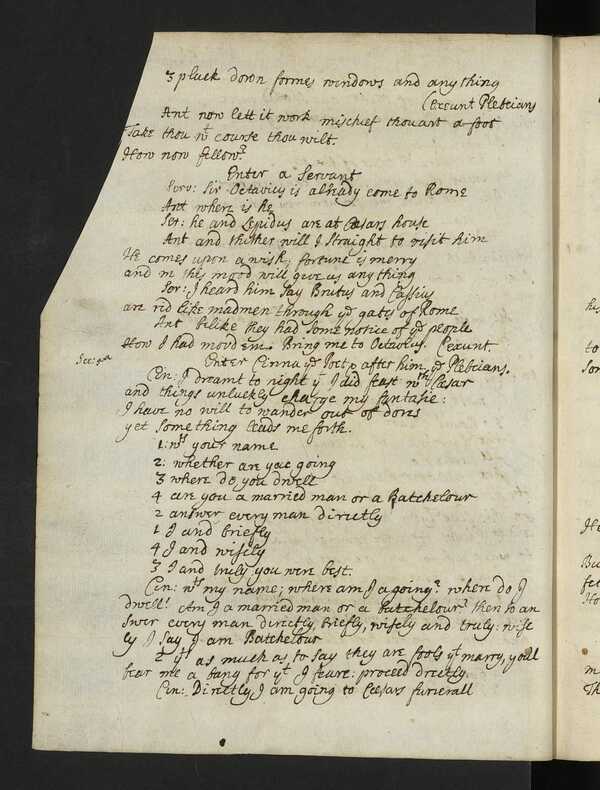 3 pluck down formes windows and any thing
(exeunt Plebeians
Ant now lett it work mischief thou art a foot
Take thou wt course thou wilt.
How now fellow?
Enter a Servant
Serv: Sir Octavius is already come to Rome
Ant where is he
Ser: he and Lepidus are at Cæsars house
Ant and thither will I straight to visit him
He comes upon a wish, fortune is merry
and in this mood will give us any thing
Ser: I heard him say Brutus and Cassius
are rid like madmen through ye gates of Rome
Ant belike they had some notice of ye people
How I had mov'd em. Bring me to Octavius. (exeunt
Sce: 3a
Enter Cinna ye Poet & after him ye Plebeians.
Cin: I dreamt to night yt I did feast wth Cæsar
and things unluckly charge my fantasie:
I have no will to wander out of dores
yet something leads me forth.
1: wts your name
2: whether are you going
3 where do you dwell
4 are you a married man or a Batchelour
2 answer every man directly
1 I and briefly
4 I and wisely
3 I and truly you were best.
Cin: wts my name; where am I a going? where do I
dwell? Am I a married man or a batchelour? then to an
swer every man directly, briefly, wisely and truly: wise
ly I say I am Batchelour
2 yts as much as to say they are fools yt marry, youl
bear me a bang for yt I feare: proceed directly.
Cin: Directly, I am going to Cæsars funerall